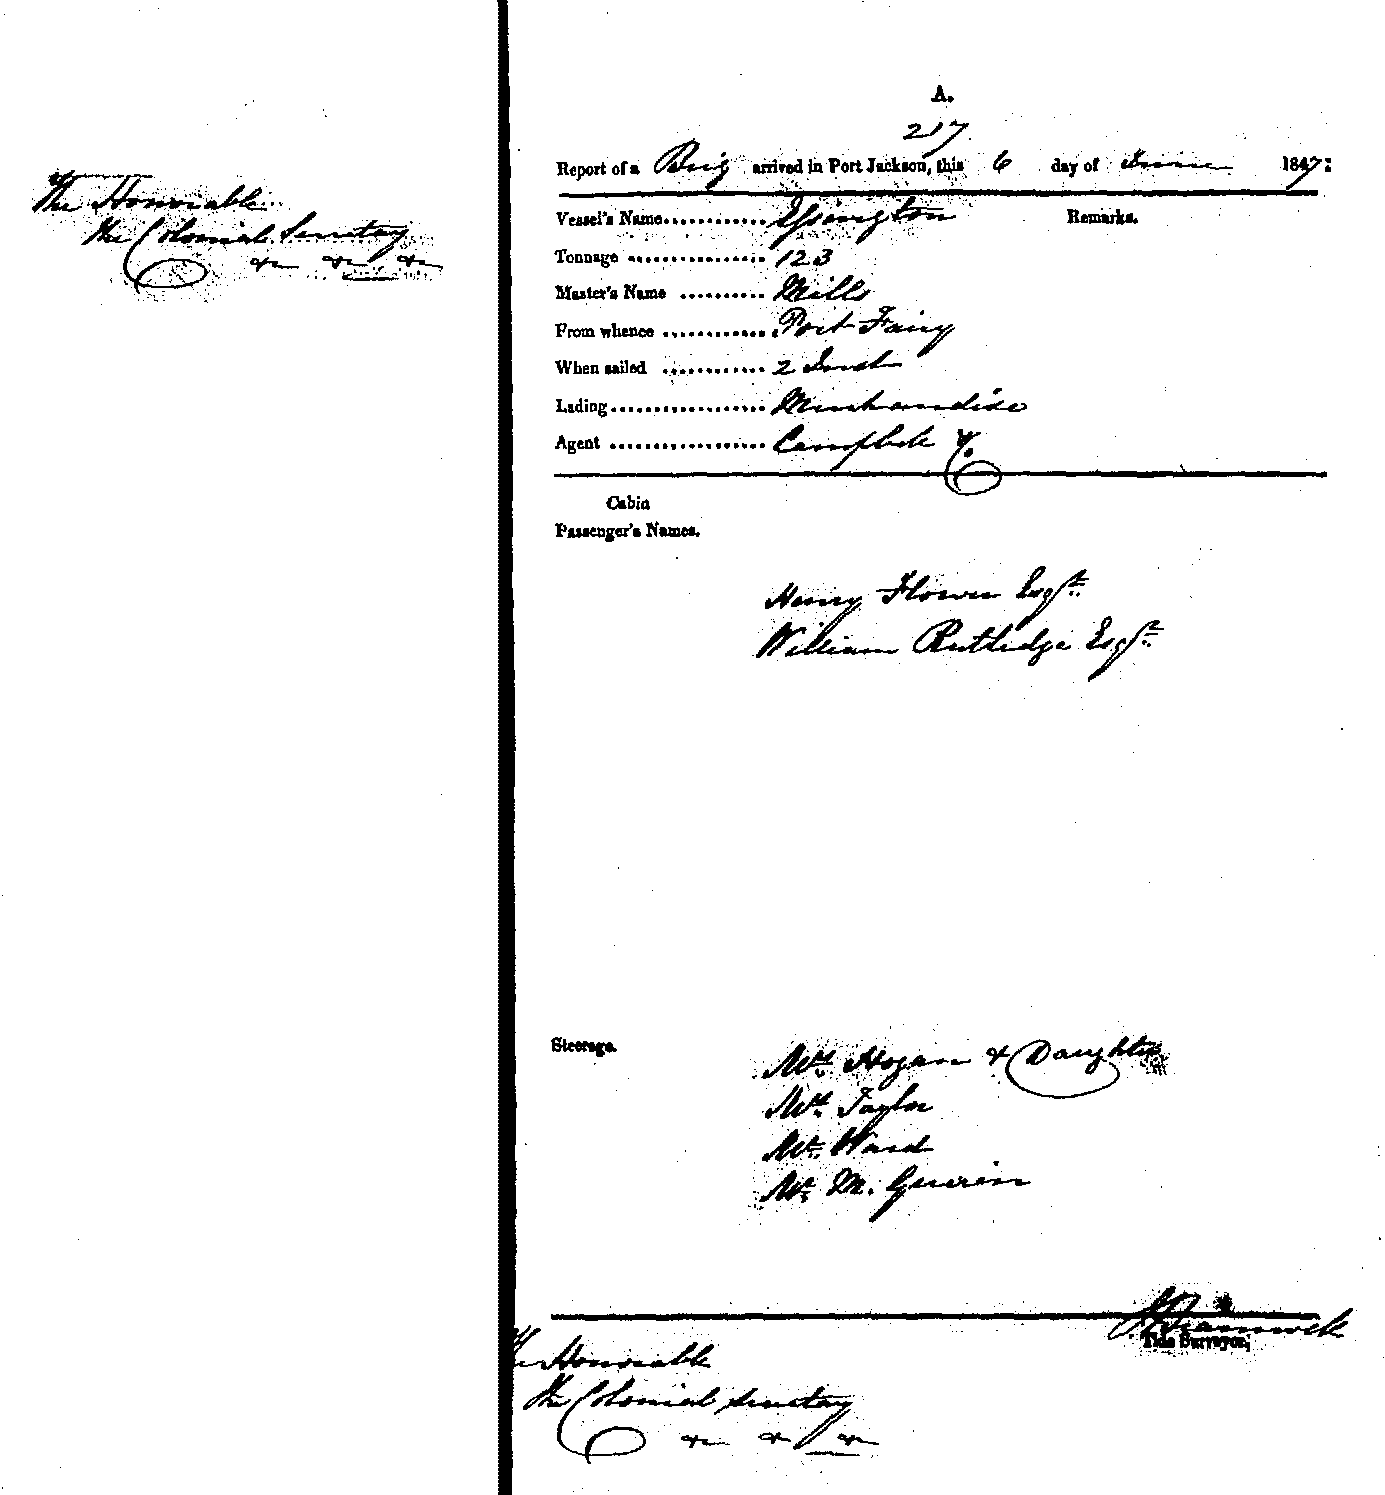 The Honorable
the Colonial Secretary
&c &c &c
A.
217
Report of a Brig arrived in Port Jackson, this 6 day of June 1847:
Vessel's Name............ Essington Remarks.
Tonnage ................ 123
Master's Name .......... Mills
From whence ............. Port Fairy
When sailed ............ 2 Inst
Lading.................. Merchandise
Agent .................. Campbell
Cabin
Passenger's Names.
Henry Flower Esqr.
William Rutledge Esqr.
Steerage. Mrs. Hogan & Daughter
Mrs. Taylor
Mr. Ward
Mr. M. Guerin
Tide Surveyor,
The Honorable
the Colonial Secretary
&c &c &c